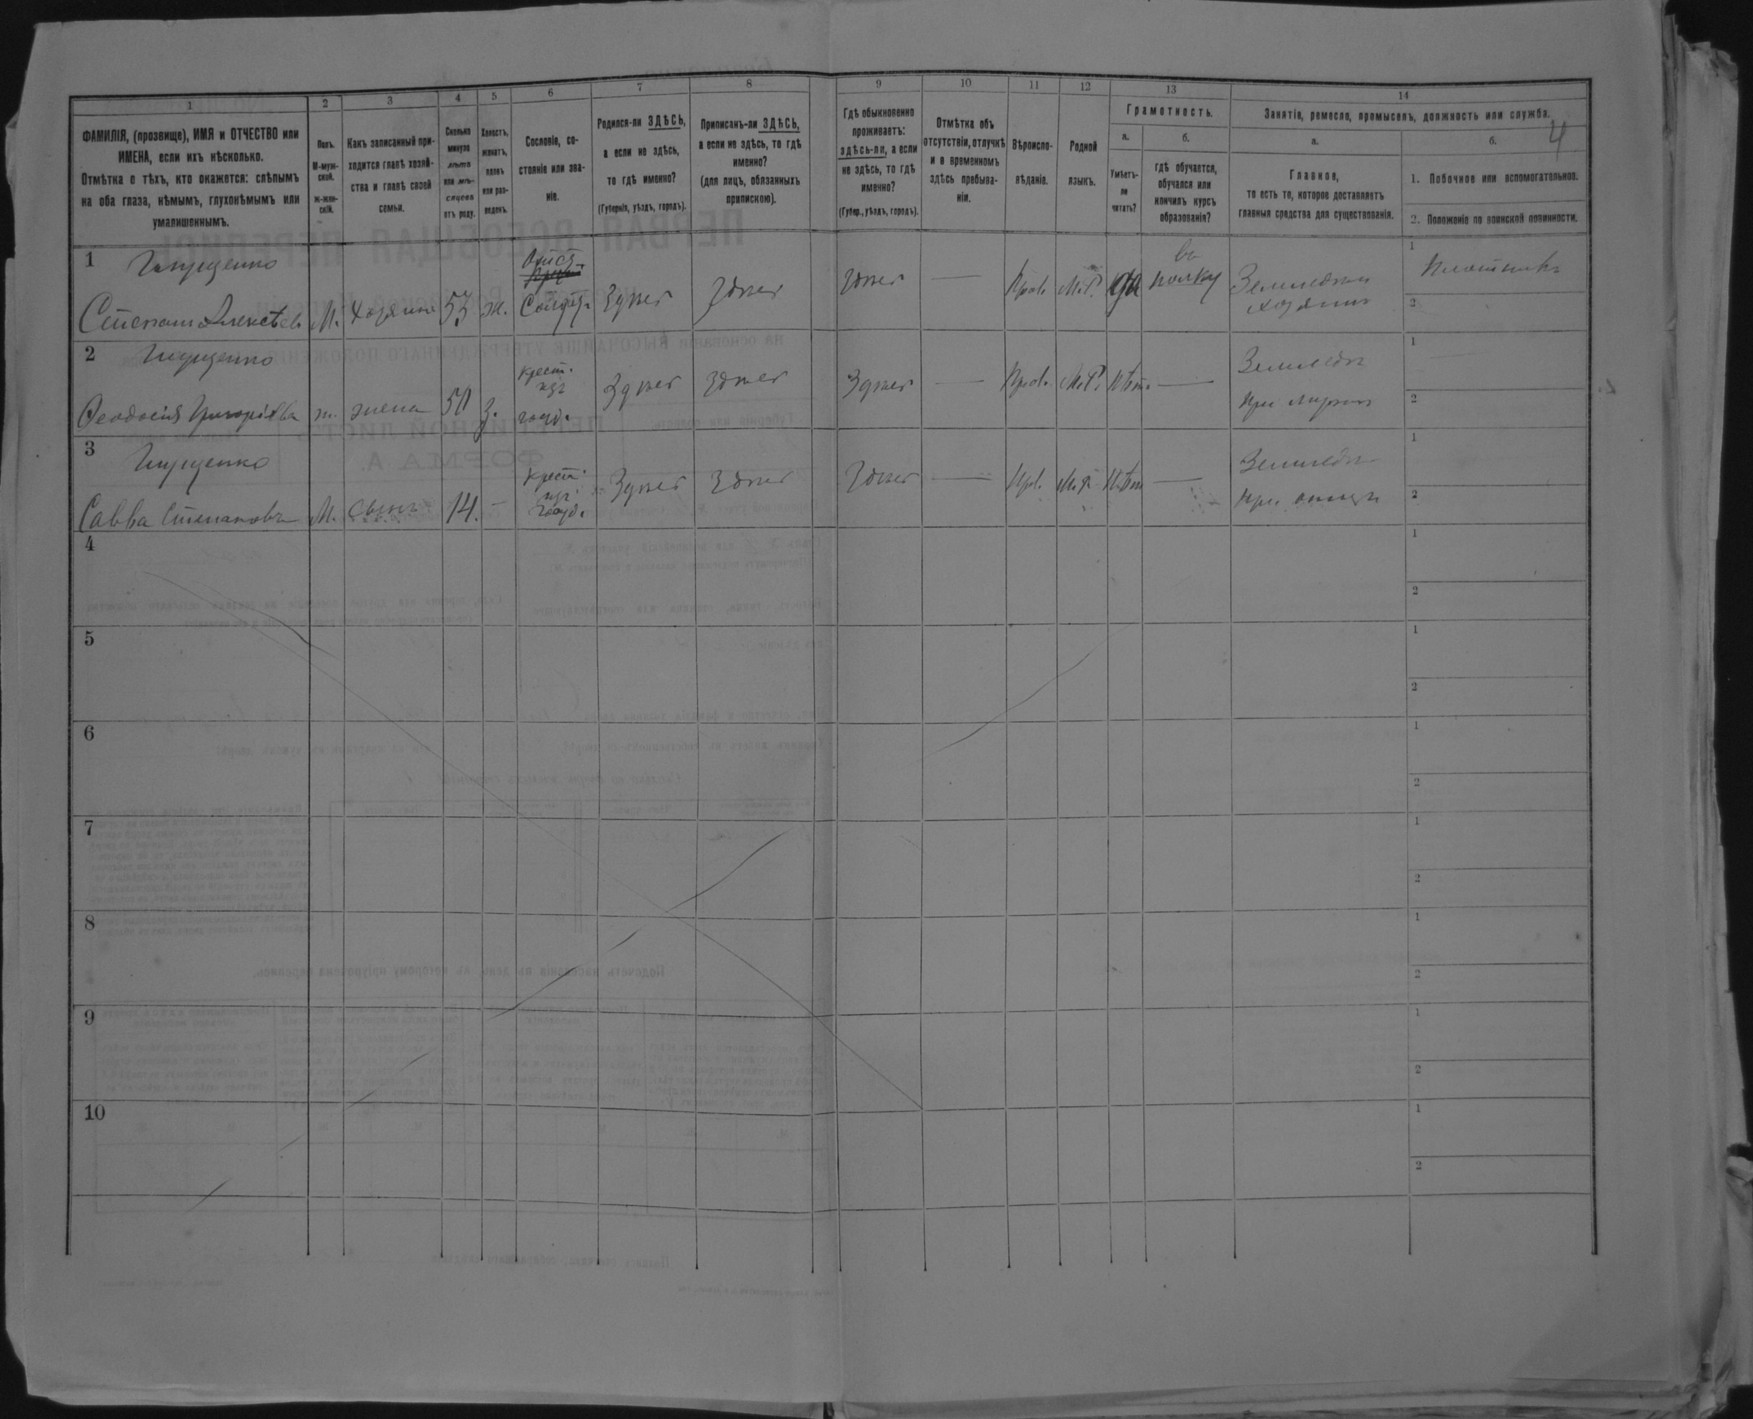 1 2 3 4 5 6 7 8 9 10 11 12 13 14
ФАМИЛІЯ, (прозвище), ИМЯ и ОТЧЕСТВО или
ИМЕНА, если ихъ нѣсколько.
Отмѣтка о тѣхъ, кто окажется: слѣпымъ
на оба глаза, нѣмымъ, глухонѣмымъ или
умалишоннымъ.
Полъ.
М-муж-
ской.
Ж-жен-
скій.
Какъ записанный при-
ходится главѣ хозяй-
ства и главѣ своей
семьи.
Сколько
минуло
лѣтъ
или мѣ-
сяцевъ
отъ роду.
Холостъ,
женатъ,
вдовъ
или раз-
веденъ.
Сословіе, со-
стояніе или зва-
ніе.
Родился-ли ЗДѢСЬ,
а если не здѣсь,
то гдѣ именно?
(Губернія, уѣздъ, городъ).
Приписанъ-ли ЗДѢСЬ,
а если не здѣсь, то гдѣ
именно?
(для лицъ, обязанныхъ
припискою).
Гдѣ обыкновенно
проживаетъ:
здѣсь-ли, а если
не здѣсь, то гдѣ
именно?
(Губер., уѣздъ, городъ).
Отмѣтка объ
отсутствіи, отлучкѣ
и о временномъ
здѣсь пребыва-
ніи.
Вѣроиспо-
вѣданіе.
Родной
языкъ.
Грамотность.
а.
Умѣетъ-
ли
читать?
б.
гдѣ обучается,
обучался или
кончилъ курсъ
образованія?
Занятіе, ремесло, промыселъ, должность или служба.
4
а.
Главное,
то есть то, которое доставляетъ
главныя средства для существованія.
б.
1. Побочное или вспомогательное.
2. Положеніе по воинской повинности.
1
Степанъ Алексѣевъ М. хозяинъ 53 ж. здѣсь здѣсь здѣсь — Прав. М.Р. да въ полку Земледѣл. хозяинъ
1 Плотникъ
2
2
Ѳеодосія Григоріева ж. жена 50 з. крест. изъ госуд. здѣсь здѣсь здѣсь — Прав. М.Р. нѣтъ — Земледѣл. при мужѣ
1
2
3
Савва Степановъ М. сынъ 14. — крест. изъ госуд. здѣсь здѣсь здѣсь — Прав. М.Р. нѣтъ — Земледѣл. при отцѣ
1
2
4
1
2
5
1
2
6
1
2
7
1
2
8
1
2
9
1
2
10
1
2